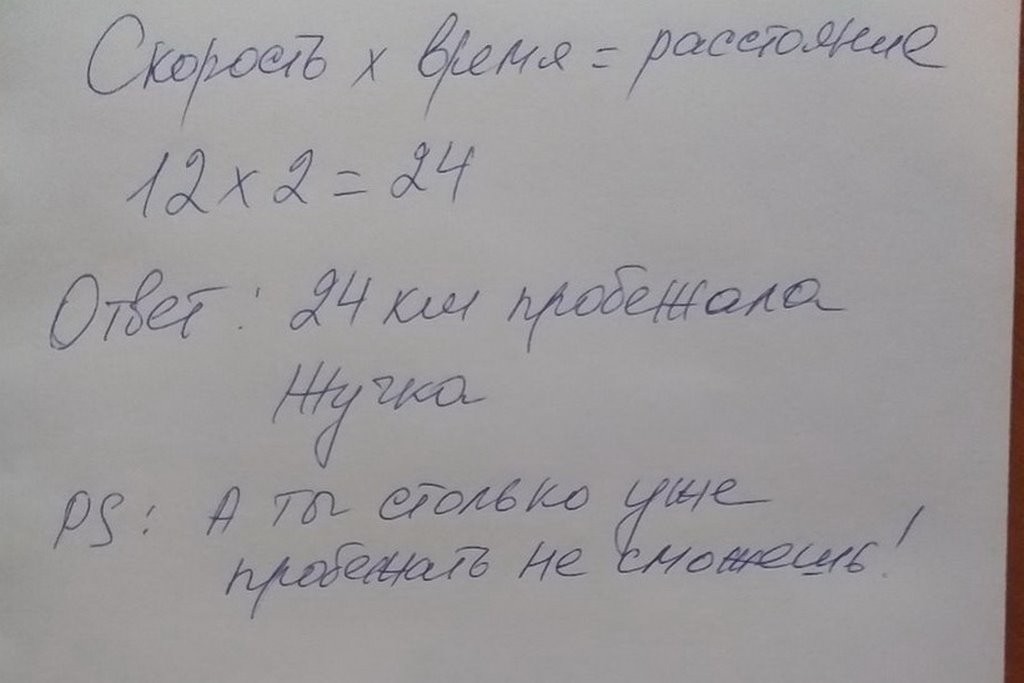 Скорость х время = расстояние
12 х 2 = 24
Ответ: 24 км пробежала
Жучка
PS: А ты столько уже
пробежать не сможешь!